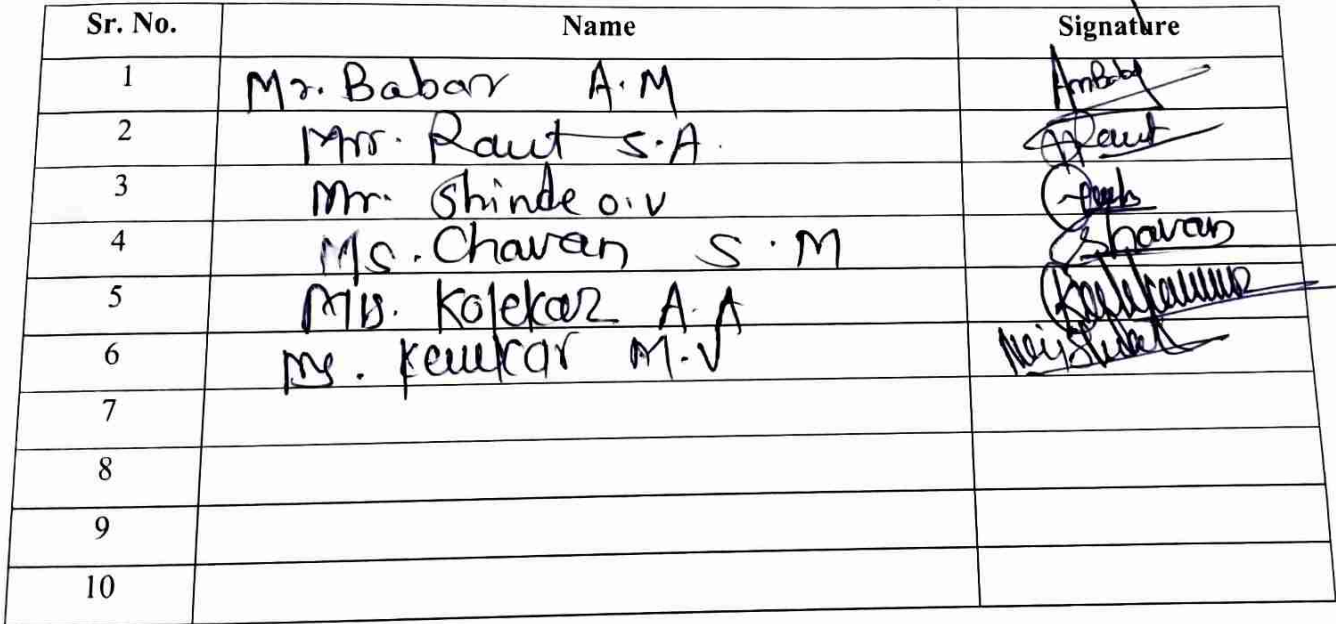 Sr. No. Name Signature
1 Mr. Babar A.M AmBabar
2 Mrs. Raut S.A. Raut
3 Mr. Shinde O.V
4 Ms. Chavan S.M Chavan
5 Mrs. Kolekar A.A
6 Ms. M.V
7
8
9
10